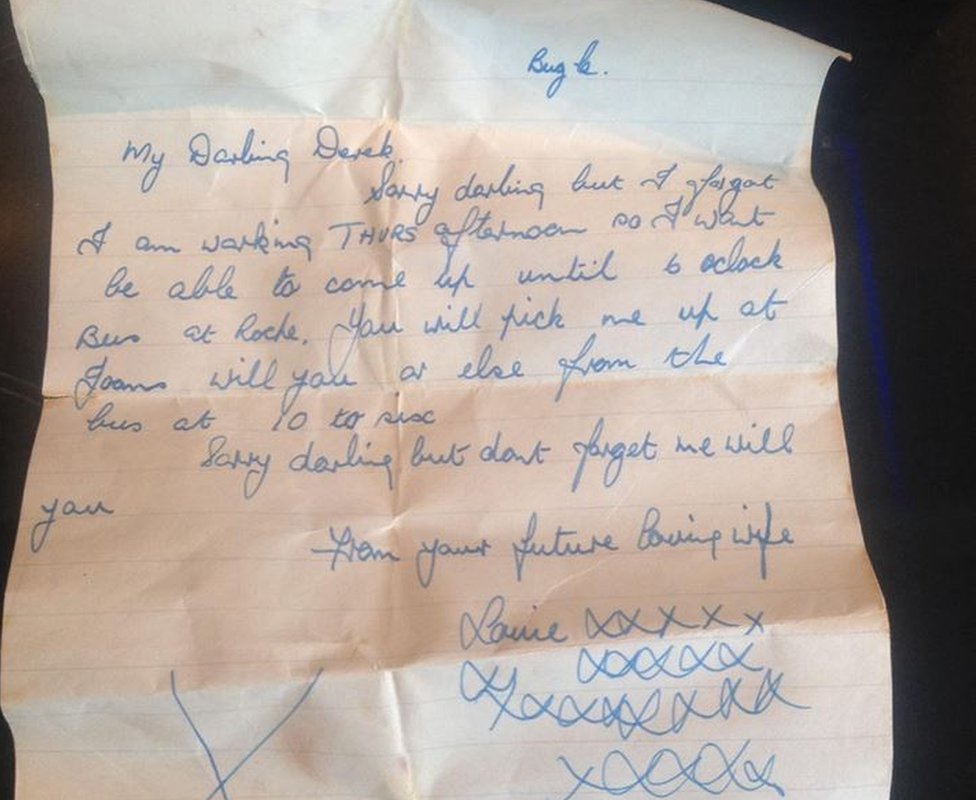 Bugle.
My Darling Derek.
Sorry darling but I forgot
I am working THURS afternoon so I wont
be able to come up until 6 oclock
Bus at Roche. You will pick me up at
Joans will you or else from the
bus at 10 to six
Sorry darling but dont forget me will
you
From your future loving wife
xxxxx
xxxxx